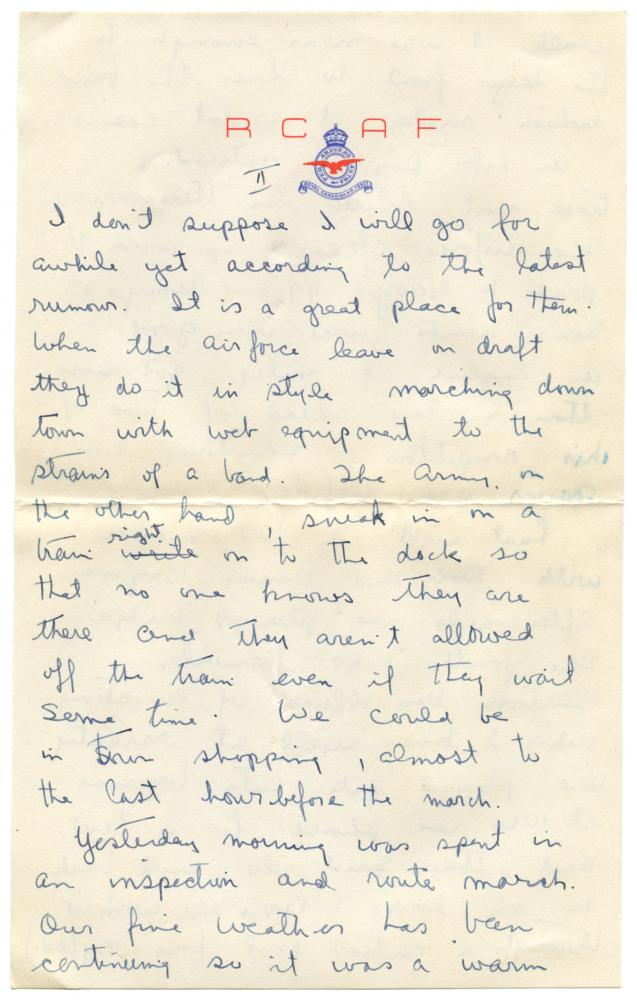 RCAF
PER ARDUA AD ASTRA
ROYAL CANADIAN AIR FORCE
II
I don't suppose I will go for
awhile yet according to the latest
rumour. It is a great place for them.
When the airforce leave on draft
they do it in style marching down
town with web equipment to the
strains of a band. The Army, on
the other hand, sneak in on a
train write right on to the dock so
that no one knows they are
there and they aren't allowed
off the train even if they wait
some time. We could be
in town shopping, almost to
the last hour before the march.
Yesterday morning was spent in
an inspection and route march.
Our fine weather has been
continuing so it was a warm